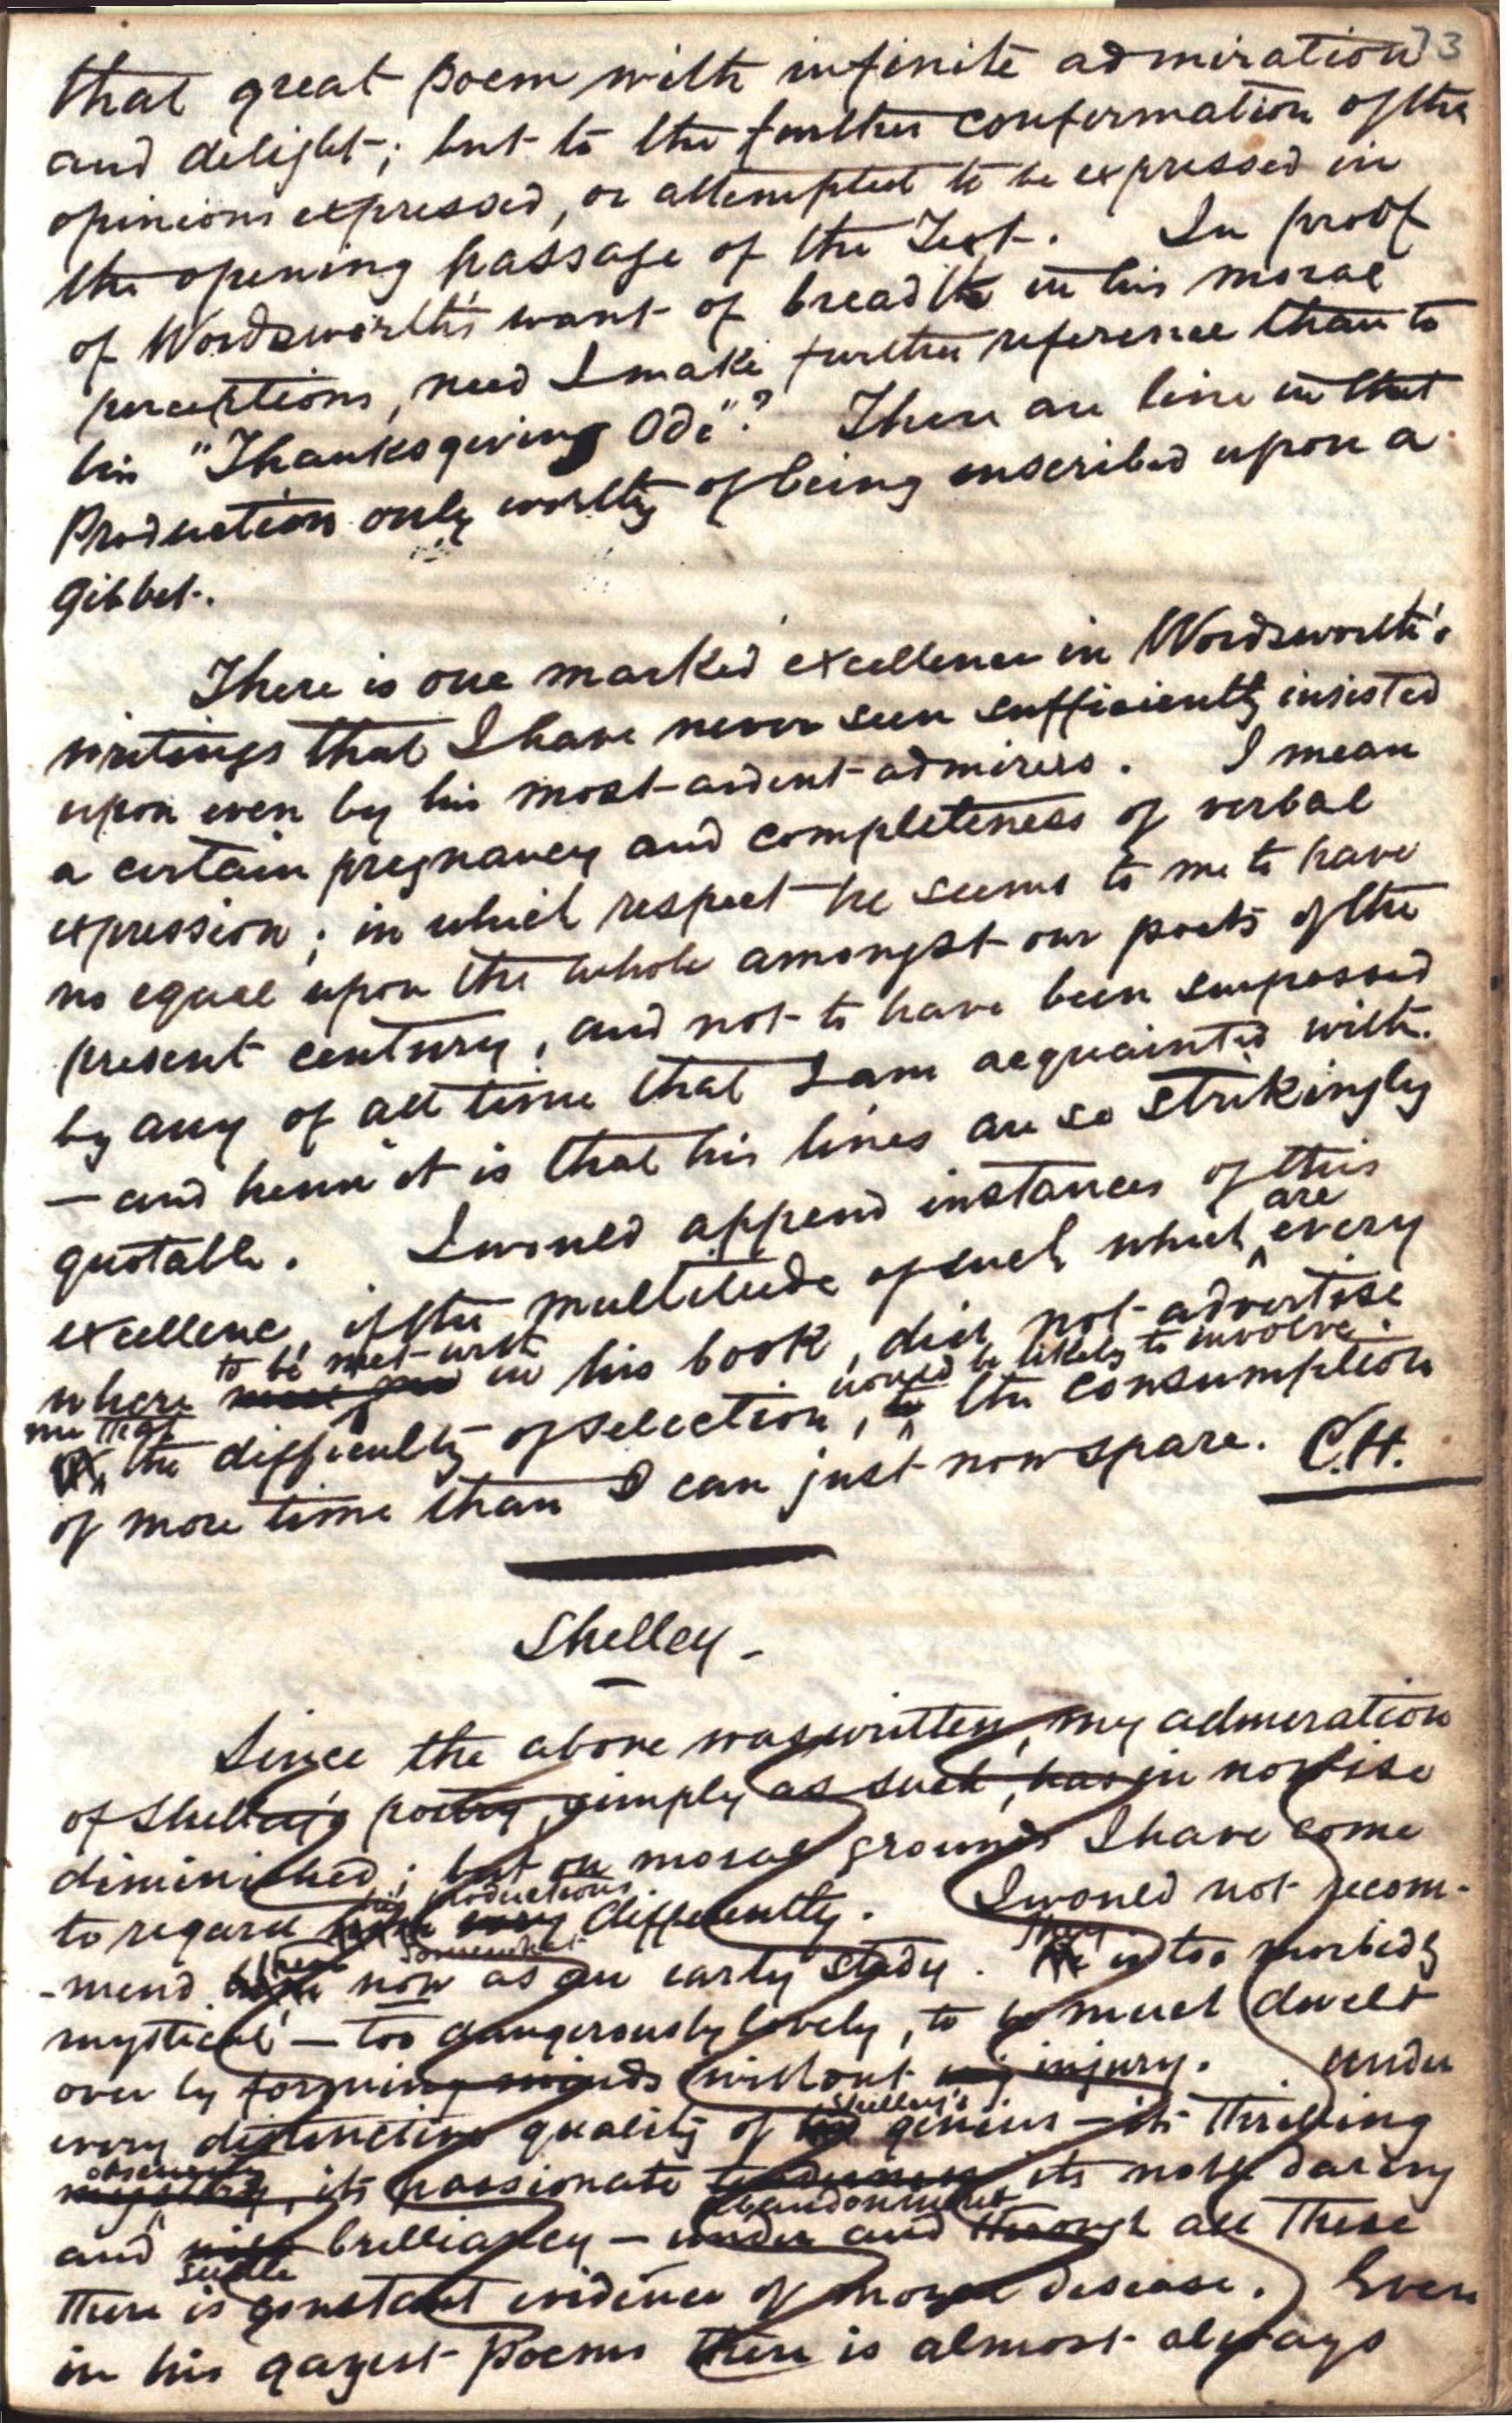 73
that great poem with infinite admiration
and delight; but to the further confirmation of the
opinions expressed, or attempted to be expressed in
the opening passage of the Text. In proof
of Wordsworth's want of breadth in his moral
perceptions, need I make further reference than to
his "Thanksgiving Ode"? There are line in that
Production only worthy of being inscribed upon a
Gibbet.
There is one marked excellence in Wordsworth's
writings that I have never seen sufficiently insisted
upon even by his most ardent admirers. I mean
a certain pregnancy and completeness of verbal
expression; in which respect he seems to me to have
no equal upon the whole amongst our poets of the
present century, and not to have been surpassed
by any of all time that I am acquainted with.
— and hence it is that his lines are so strikingly
quotable. I would append instances of this
are
excellence, if the multitude of such which every
to be met with
where in his book, did not advertise
would be likely to involve
me that
the difficulty of selection, the consumption
of more time than I can just now spare. C.H.
Shelley -
Since the above was written, my admiration
of Shelley's poetry, simply as such, has in nowise
diminished; but on moral grounds I have come
his productions
to regard differently. I would not recom-
them somewhat
-mend now as an early study. is too morbidly
mystical — too dangerously lovely, to be much dwelt
over by forming minds without any injury. Under
Shelley's
every distinctive quality of his genius — its thrilling
obscurity
, its passionate tenderness its noble daring
abandonment
and brilliancy — under and through all these
subtle
there is constant evidence of moral disease. Even
in his gayest poems there is almost always